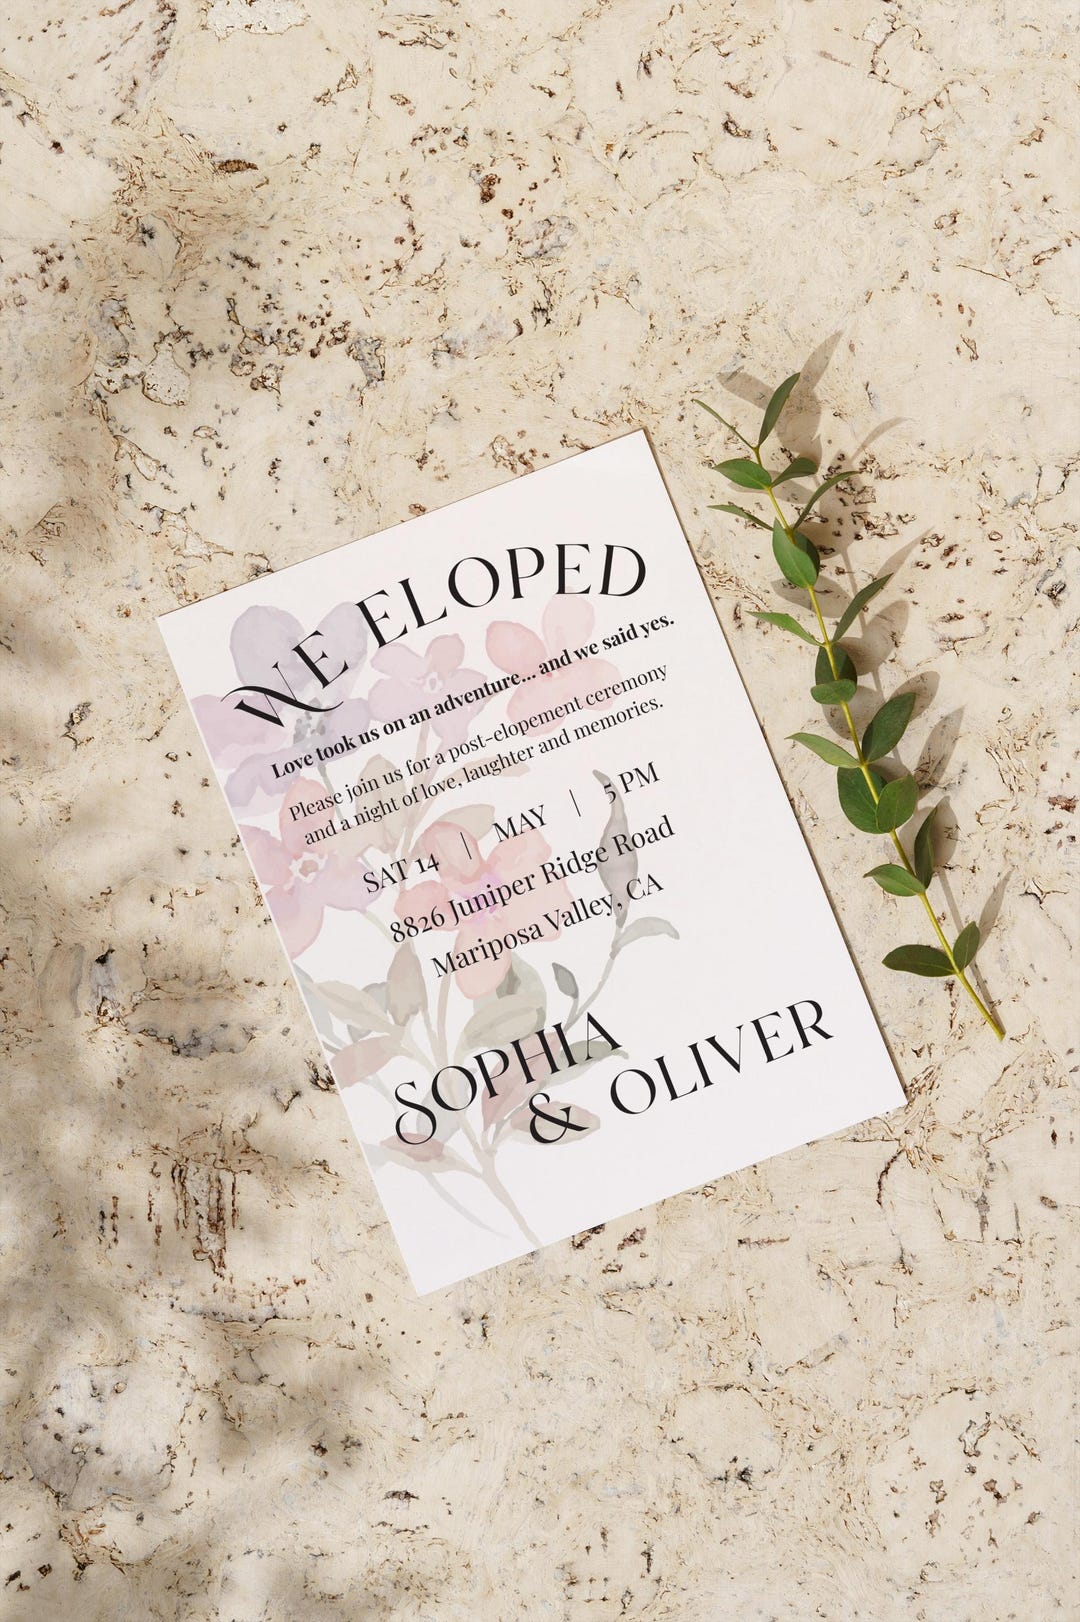 WE ELOPED
Love took us on an adventure... and we said yes.
Please join us for a post-elopement ceremony
and a night of love, laughter and memories.
SAT 14 | MAY | 5 PM
8826 Juniper Ridge Road
Mariposa Valley, CA
SOPHIA
& OLIVER